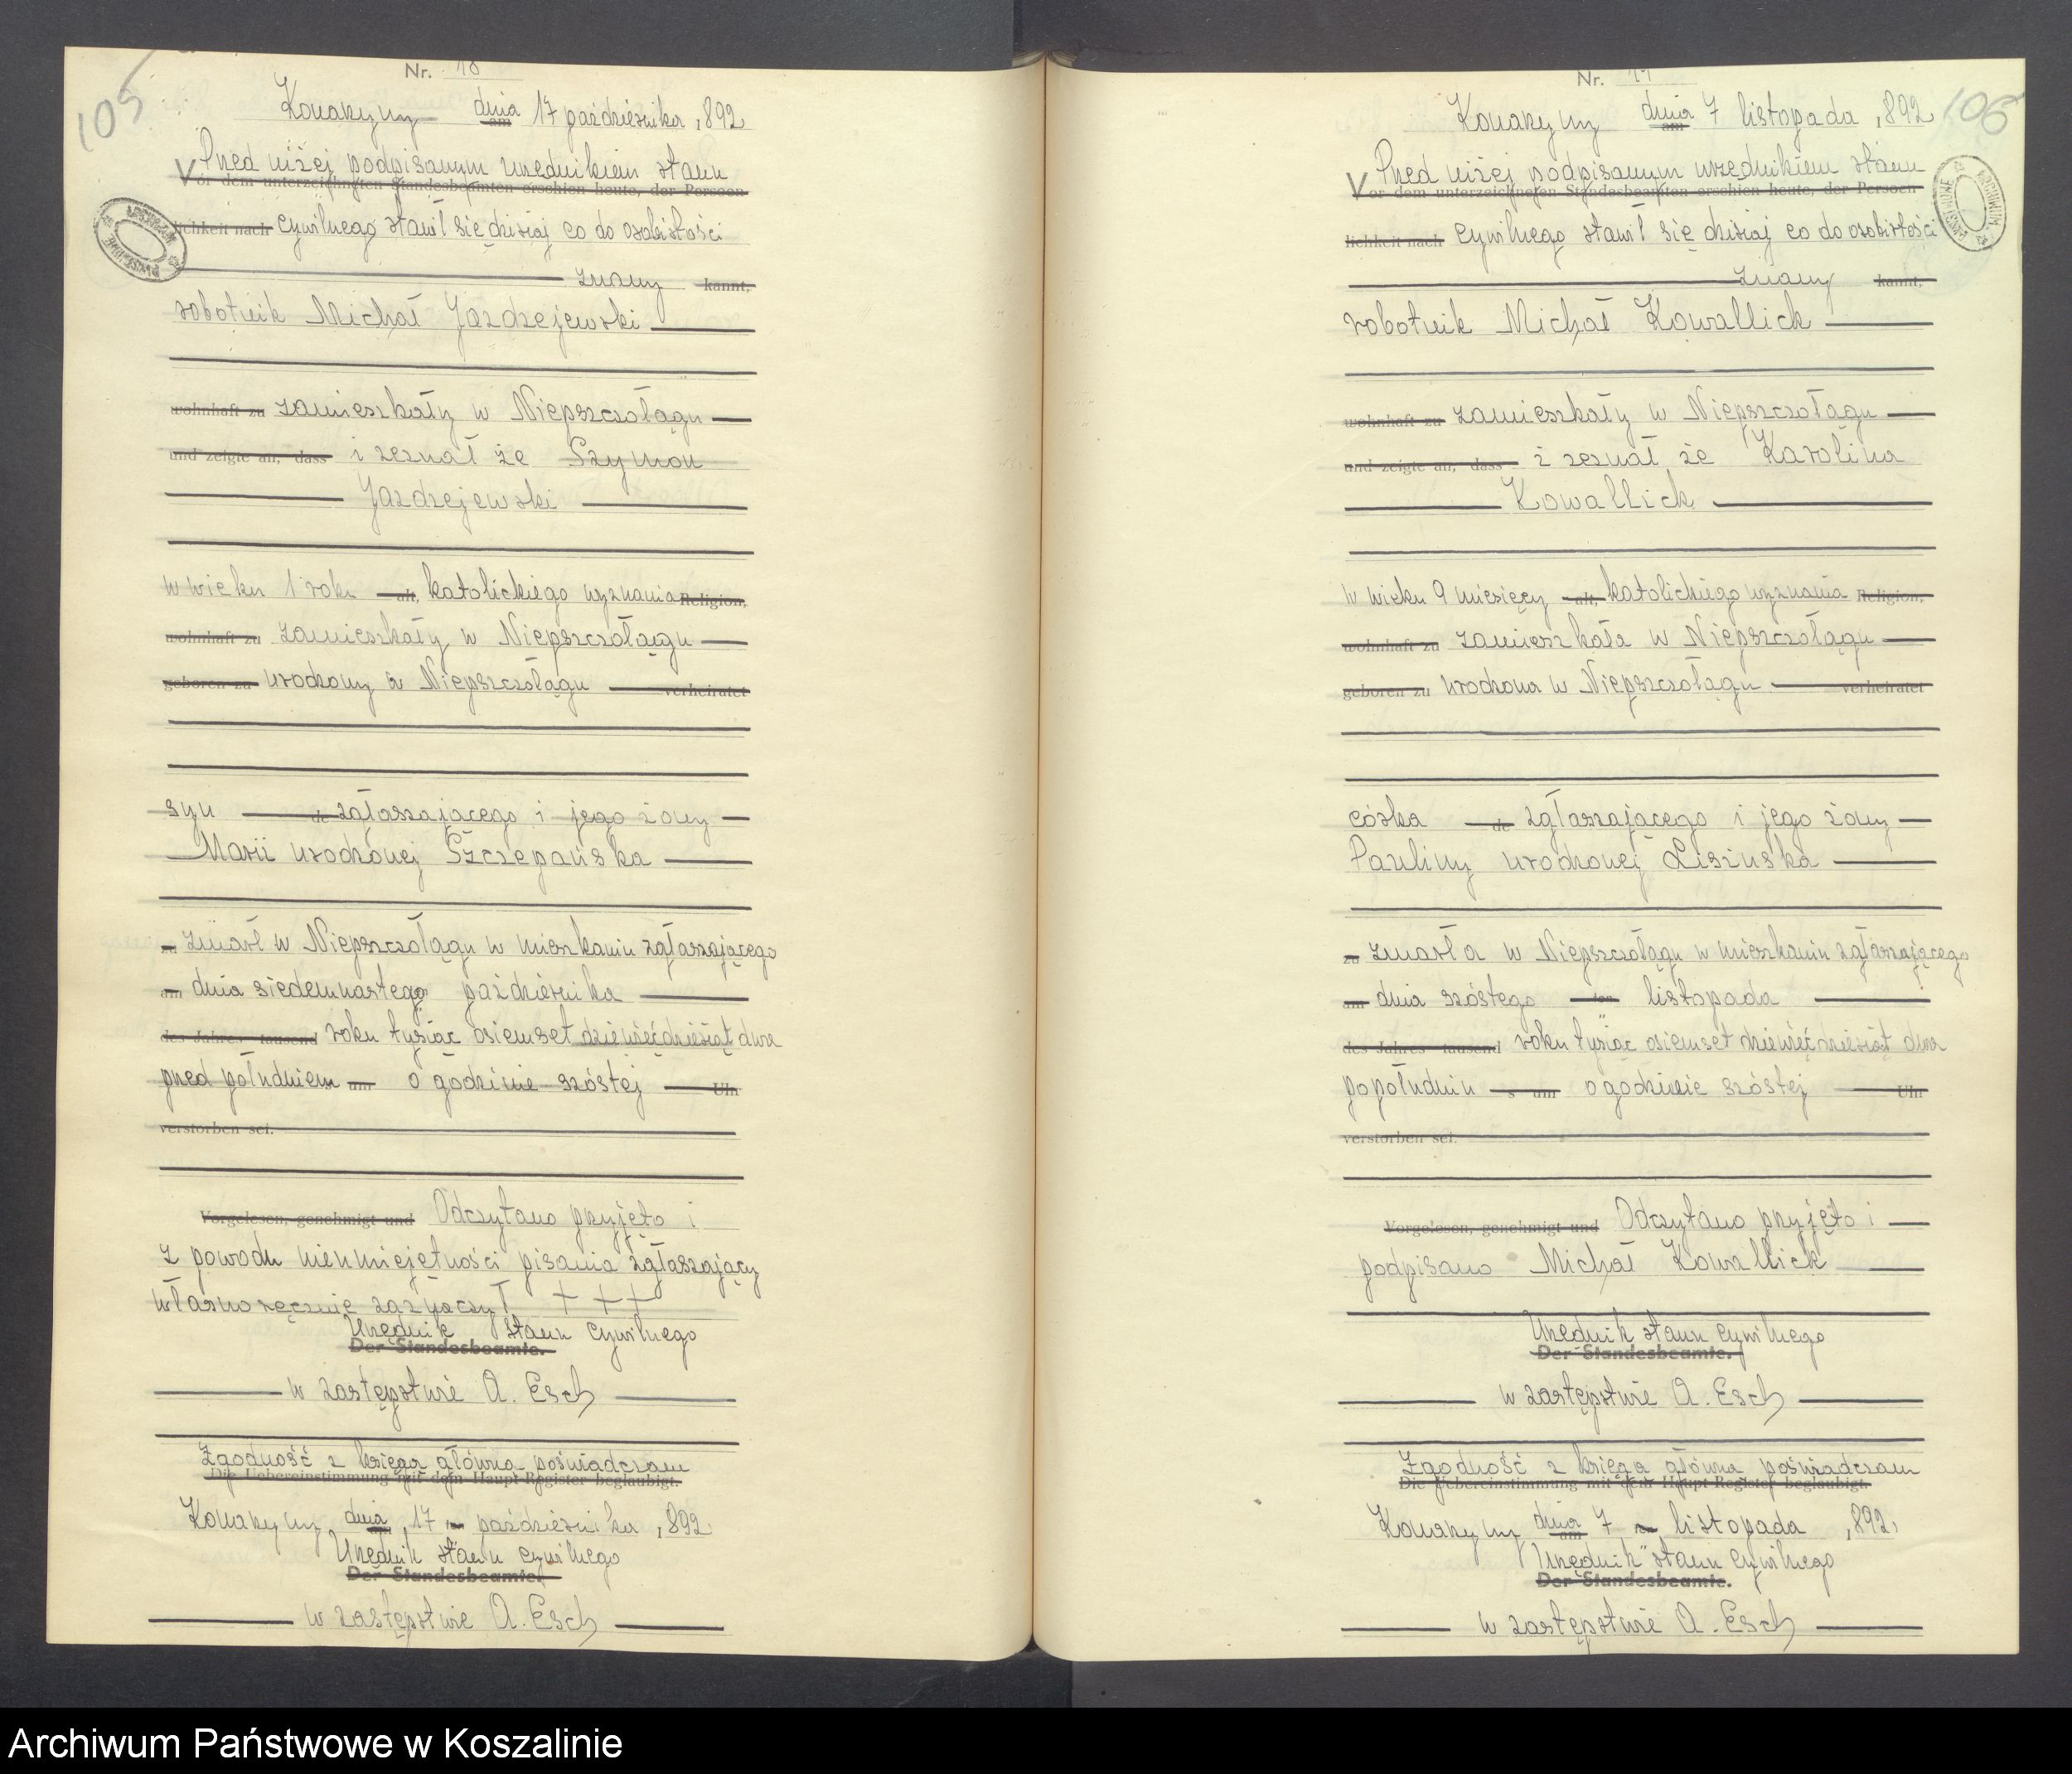 105
Nr. 18
Konarzyny dnia am 17 października 1892
Przed niżej podpisanym urzędnikiem stanu
Vor dem unterzeichneten Standesbeamten erschien heute, der Persoen-
lichkeit nach cywilnego stawił się dzisiaj co do osobistości
znany kannt,
robotnik Michał Jazdzejewski
wohnhaft zu zamieszkały w Niepszczołągu
und zeigte an, dass i zeznał że Szymon
Jazdzejewski
w wieku 1 roku alt, katolickiego wyznania Religion,
wohnhaft zu zamieszkały w Niepszczołągu
geboren zu urodzony w Niepszczołągu verheiratet
syn de zgłaszającego i jego żony
Marii urodzonej Szczepańska
zu zmarł w Niepszczołągu w mieszkaniu zgłaszającego
am dnia siedemnastego października
des Jahres tausend roku tysiąc osiemset dziewięćdziesiąt dwa
przed południem um o godzinie szóstej Uhr
verstorben sei.
Vorgelesen, genehmigt und Odczytano przyjęto i
z powodu nieumiejętności pisania zgłaszający
własnoręcznie zaznaczył + + +
Urzędnik stanu cywilnego
Der Standesbeamte.
w zastępstwie A. Esch
Zgodność z księgą główną poświadczam
Die Uebereinstimmung mit dem Haupt-Register beglaubigt.
Konarzyny dnia am 17 października 1892
Urzędnik stanu cywilnego
Der Standesbeamte.
w zastępstwie A. Esch
106
Nr.
Konarzyny dnia am 7 listopada 1892
Przed niżej podpisanym urzędnikiem stanu
Vor dem unterzeichneten Standesbeamten erschien heute, der Persoen-
lichkeit nach cywilnego stawił się dzisiaj co do osobistości
znany kannt,
robotnik Michał Kowallick
wohnhaft zu zamieszkały w Niepszczołągu
und zeigte an, dass i zeznał że Karolina
Kowallick
w wieku 9 miesięcy alt, katolickiego wyznania Religion,
wohnhaft zu zamieszkała w Niepszczołągu
geboren zu urodzona w Niepszczołągu verheiratet
córka de zgłaszającego i jego żony
Pauliny urodzonej Lisińska
zu zmarła w Niepszczołągu w mieszkaniu zgłaszającego
am dnia szóstego ten listopada
des Jahres tausend roku tysiąc osiemset dziewięćdziesiąt dwa
popołudniu s um o godzinie szóstej Uhr
verstorben sei.
Vorgelesen, genehmigt und Odczytano przyjęto i
podpisano Michał Kowallick
Urzędnik stanu cywilnego
Der Standesbeamte.
w zastępstwie A. Esch
Zgodność z księgą główną poświadczam
Die Uebereinstimmung mit dem Haupt-Register beglaubigt.
Konarzyny dnia am 7 listopada 1892
Urzędnik stanu cywilnego
Der Standesbeamte.
w zastępstwie A. Esch
Archiwum Państwowe w Koszalinie